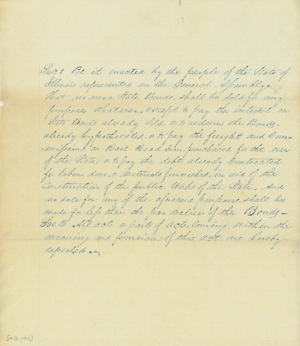 Sec 1 Be it enacted by the people of the State of
Illinois represented in the General Assembly,
That no more State Bonds, shall be sold for any
purpose whatever, except to pay the interest on
State Bonds already Sold & to redeem the Bonds
already hypothecated & to pay the freight and Com
on Rail Road Iron purchased for the use
of the State, & to pay the debt already Contracted
for labour done & materials furnished in aid of the
Construction of the public Works of the State, And
no sale for any of the aforesaid purposes shall be
made for less than the par value of the Bonds—
Sec 2 All acts & parts of acts, Coming within the
meaning and provisions of this act, are hereby
repealed